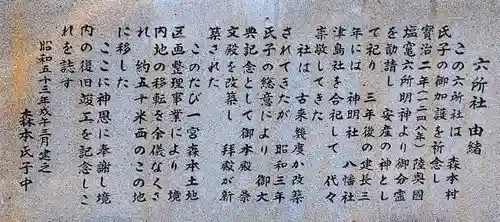 六所社 由緒
この六所社は 森本村
氏子の御加護を祈念し
寳治二年(一二四八年)陸奥國
塩竃六所明神より御分霊
を勧請し 安産の神とし
て祀り 三年後の建長三
年には 神明社 八幡社
津島社を合祀して 代々
崇敬してきた
社は 古来幾度か改築
されてきたが 昭和三年
氏子の総意により 御大
典記念として御本殿 祭
文殿を改築し 拝殿が新
築された
このたび一宮森本土地
区画整理事業により 境
内地の移転を余儀なくさ
れ 約五十米西のこの地
に移した
ここに神恩に奉謝し境
内の復旧竣工を記念しこ
れを誌す
昭和五十三年戊午三月建之
森本氏子中